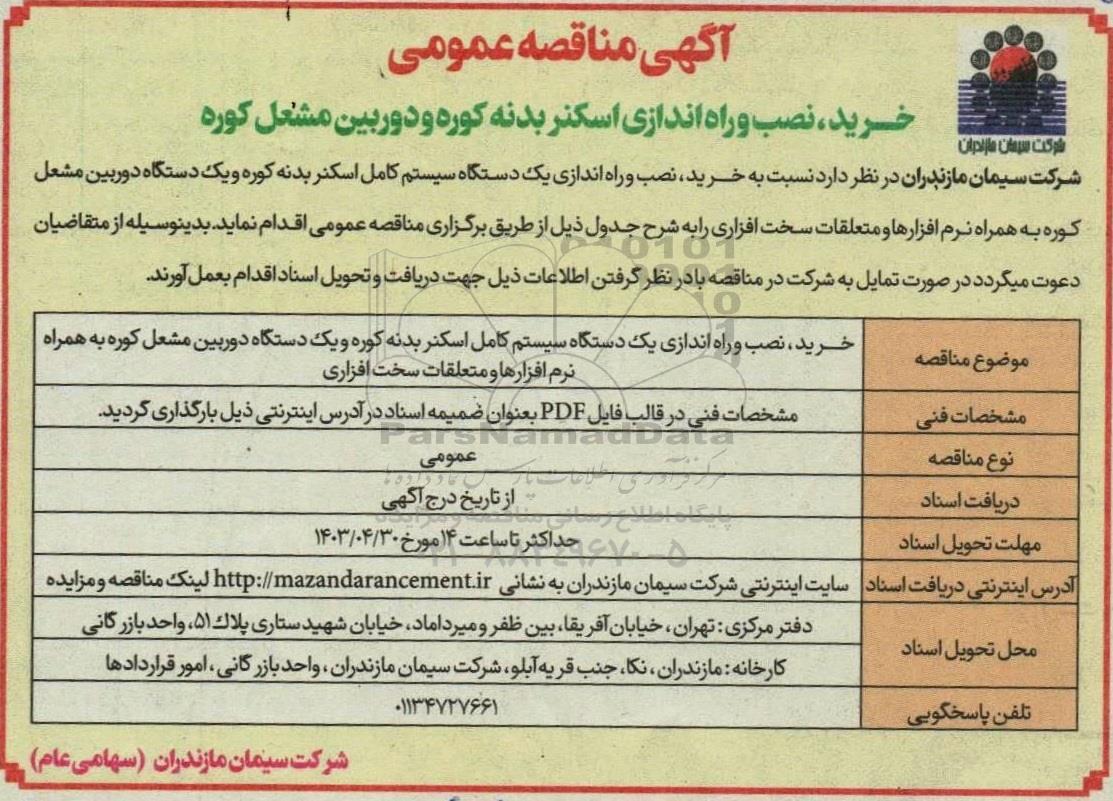 آگهی مناقصه عمومی
شرکت سیمان مازندران
خرید، نصب و راه اندازی اسکنر بدنه کوره و دوربین مشعل کوره
شرکت سیمان مازندران در نظر دارد نسبت به خرید، نصب و راه اندازی یک دستگاه سیستم کامل اسکنر بدنه کوره و یک دستگاه دوربین مشعل
کوره به همراه نرم افزارها و متعلقات سخت افزاری را به شرح جدول ذیل از طریق برگزاری مناقصه عمومی اقدام نماید. بدینوسیله از متقاضیان
دعوت میگردد در صورت تمایل به شرکت در مناقصه با در نظر گرفتن اطلاعات ذیل جهت دریافت و تحویل اسناد اقدام بعمل آورند.
موضوع مناقصه
خرید، نصب و راه اندازی یک دستگاه سیستم کامل اسکنر بدنه کوره و یک دستگاه دوربین مشعل کوره به همراه
نرم افزارها و متعلقات سخت افزاری
مشخصات فنی
مشخصات فنی در قالب فایل PDF بعنوان ضمیمه اسناد در آدرس اینترنتی ذیل بارگذاری گردید.
ParsNamadData
نوع مناقصه
عمومی
مرکز فرآوری اطلاعات پارس نماد داده ها
دریافت اسناد
از تاریخ درج آگهی
پایگاه اطلاع رسانی مناقصه و مزایده
مهلت تحویل اسناد
حداکثر تا ساعت ۱۴ مورخ ۱۴۰۳/۰۴/۳۰
۰۲۱-۸۸۳۴۹۶۷۰-۵
آدرس اینترنتی دریافت اسناد
سایت اینترنتی شرکت سیمان مازندران به نشانی http://mazandarancement.ir لینک مناقصه و مزایده
محل تحویل اسناد
دفتر مرکزی: تهران، خیابان آفریقا، بین ظفر و میرداماد، خیابان شهید ستاری پلاک ۵۱، واحد بازرگانی
کارخانه: مازندران، نکا، جنب قریه آبلو، شرکت سیمان مازندران، واحد بازرگانی، امور قراردادها
تلفن پاسخگویی
۰۱۱۳۴۷۲۷۶۶۱
شرکت سیمان مازندران (سهامی عام)